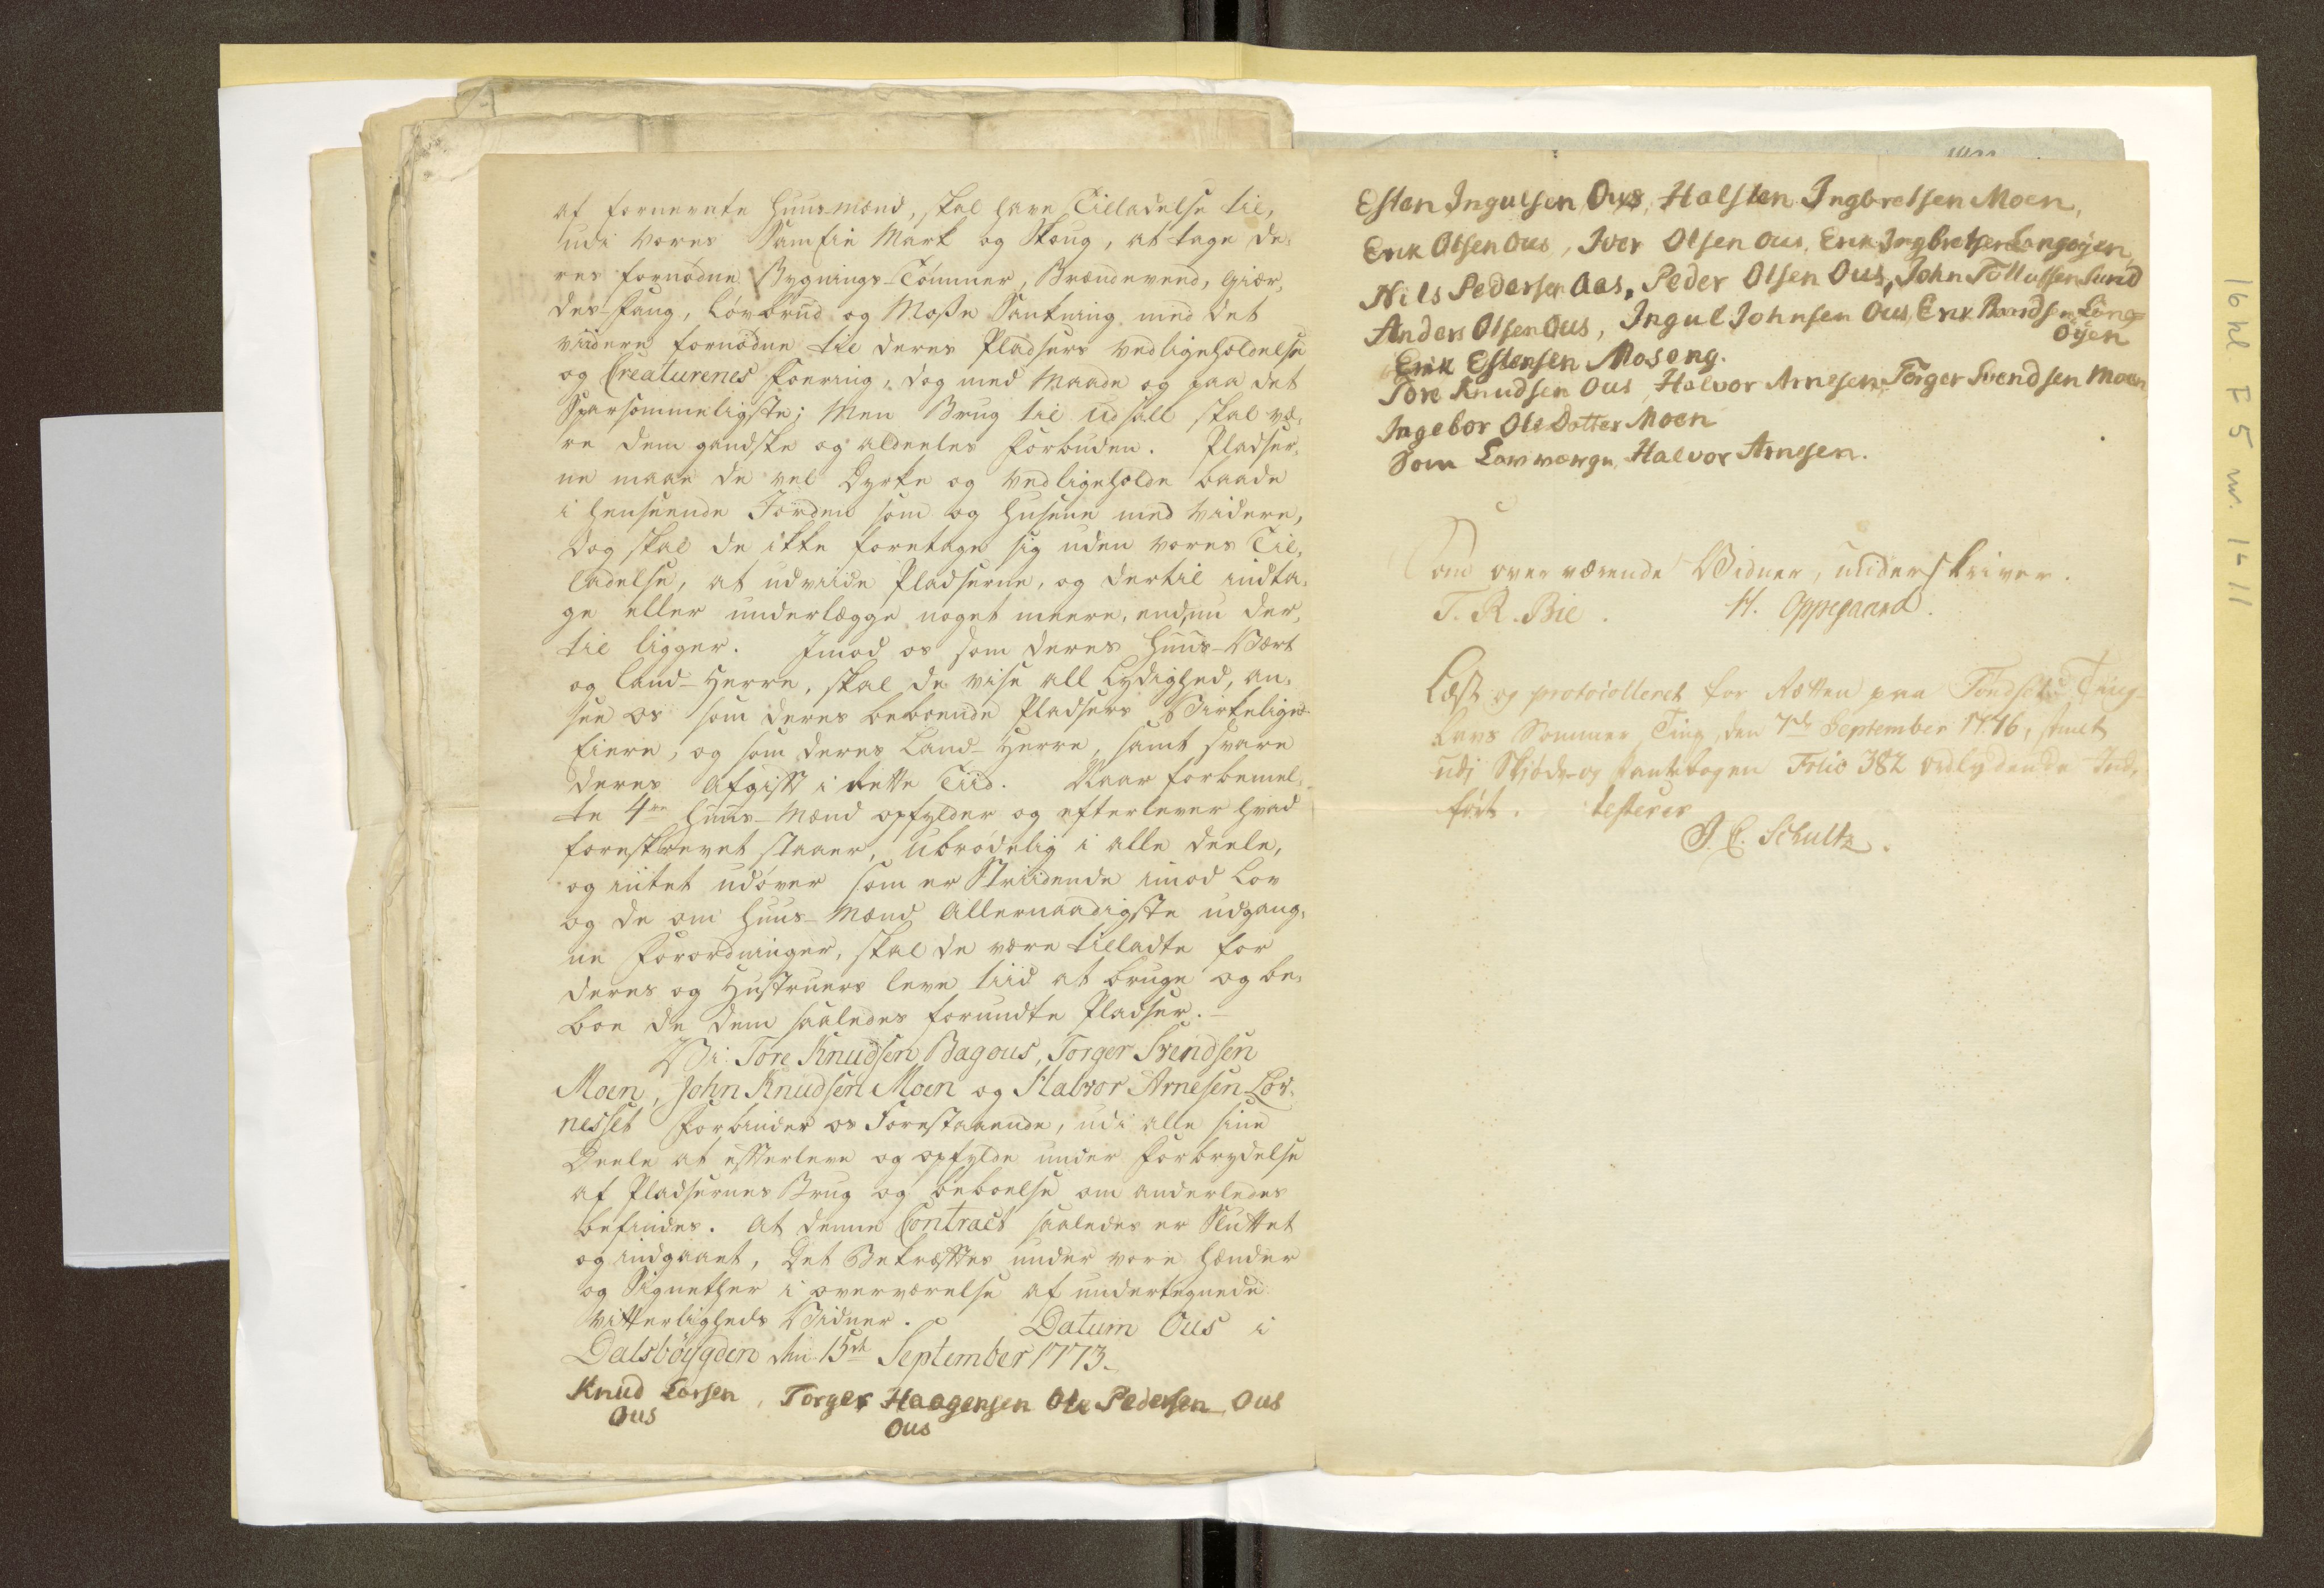 af fornevnte Huusmænd, skal have Tilladelse til,
udi vores Samfie Mark og Skoug, at tage de-
res fornødne Bygnings-Tømmer, Brændeveed, Giær-
des-Fang, Løvbrud og Mosse Sankning med det
viidere fornødne til deres Pladsers vedligeholdelse
og Creaturenes Foering, dog med Maade og paa det
Sparsommeligste; Men Brug til Udsall skal væ-
re dem gandske og aldeeles forbuden. Pladser-
ne maae de vel Dyrke og vedligeholde baade
i henseende Jorden som og Husene med videre,
dog skal de ikke foretage sig uden vores Til-
ladelse, at udviide Pladserne, og dertil indta-
ge eller underlægge noget meere, end nu der-
til ligger. Imod os som deres Huus-Vært
og Land-Herre, skal de vise all Lydighed, an-
see os som deres beboende Pladsers Virkelige
Eiere, og som deres Land-Herre, samt svare
deres Afgift i rette Tiid. Naar forbemel-
te 4re Huus-Mænd opfylder og efterlever hvad
foreskrevet staaer, ubrødelig i alle deele,
og intet udøver som er Striidende imod Lov
og de om Huus-Mænd Allernaadigste udgang-
ne Forordninger, skal de være tilladte for
deres og Hustruers leve tiid at bruge og be-
boe de dem saaledes forundte Pladser.
Vi: Tore Knudsen Bagous, Torger Svendsen
Moen, John Knudsen Moen og Halvor Arnesen Løv-
nesset forbinder os Forestaaende, udi alle sine
Deele at efterleve og opfylde under Forbrydelse
af Pladsernes Brug og beboelse om anderledes
befindes. At denne Contract saaledes er Sluttet
og indgaaet, Det Bekræftes under vore hænder
og Signether i overværelse af undertegnede
Vitterligheds Vidner. Datum Ous i
Dalsbøygden den 15de September 1773.
Knud Larsen, Torger Haagensen Ole Pedersen Ous
Ous Ous
Esten Ingulsen Ous, Halsten Ingbretsen Moen,
Erik Olsen Ous, Iver Olsen Ous, Erik Ingbretsen Langøyen,
Nils Pedersen Aas, Peder Olsen Ous, John Tollofsen Sund
Anders Olsen Ous, Ingul Johnsen Ous, Erik Lang-
øyen
Erik Estensen Moseng.
Tore Knudsen Ous, Halvor Arnesen, Torger Svendsen Moen,
Ingebor Ole Dotter Moen
Som Lavværge, Halvor Arnesen.
Som overværende Vidner, underskriver.
T. R. Bie. H. Oppegaard.
Læst og protocolleret for Retten paa Tøndset Ting-
Lavs Sommer Ting, den 7de September 1776, samt
udi Skjøde og Pantebogen Folio 382 ordlydende Ind-
ført. testerer
J. C. Schultz.
16 kl F 5 nr. 1-11